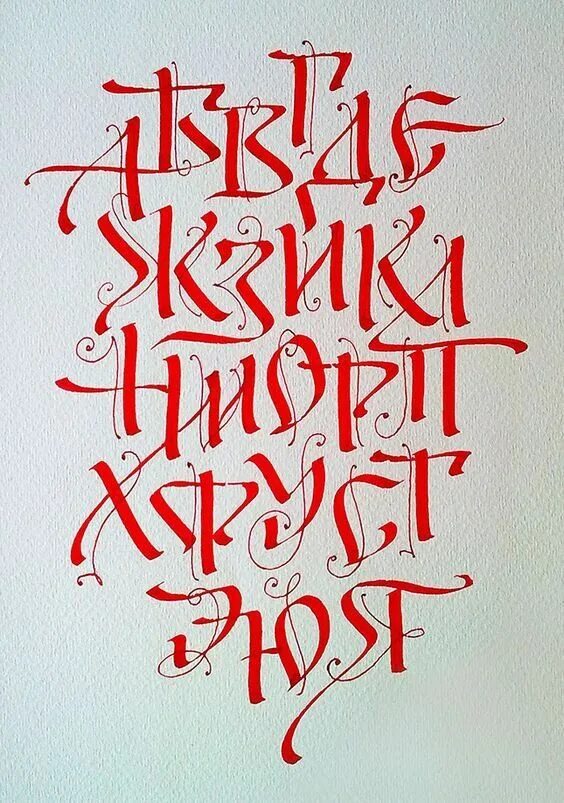 АБВГДЕ
ЖЗИКЛ
НМОРП
ХФУСТ
ЭЮЯ